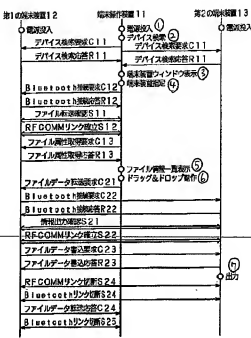 第1の端末装置12
端末操作装置11
第2の端末装置13
電源投入
電源投入 ①
電源投入
デバイス検索 ②
デバイス検索要求C11
デバイス検索要求C11
デバイス検索応答R11
デバイス検索応答R11
端末装置ウィンドウ表示 ③
端末装置指定 ④
Bluetooth接続要求C12
Bluetooth接続応答R12
ファイル転送確認S11
RFCOMMリンク確立S12
ファイル属性取得要求C13
ファイル属性取得応答R13
ファイル情報一覧表示 ⑤
ドラッグ&ドロップ動作 ⑥
ファイルデータ転送要求C21
Bluetooth接続要求C22
Bluetooth接続応答R22
情報出力確認S21
RFCOMMリンク確立S22
ファイルデータ書込要求C23
ファイルデータ書込応答R23
⑦
出力
RFCOMMリンク切断S24
Bluetoothリンク切断S24
ファイルデータ転送応答C24
Bluetoothリンク切断S25